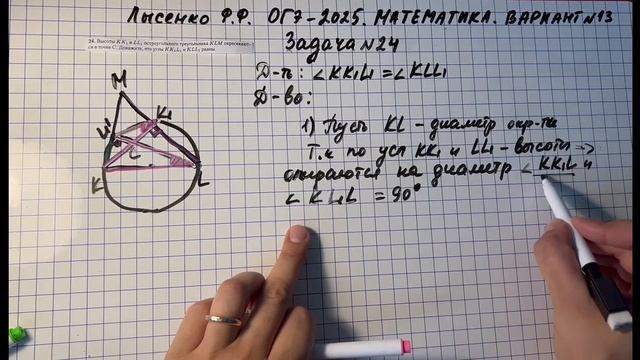 Лысенко Ф.Ф. ОГЭ-2025. МАТЕМАТИКА. ВАРИАНТ №13
24. Высоты KK₁ и LL₁ остроугольного треугольника KLM пересекают-
ся в точке C. Докажите, что углы KK₁L₁ и KLL₁ равны.
Задача №24
Д-ть: ∠KK₁L₁ = ∠KLL₁
Д-во:
1) Пусть KL - диаметр окр-ти
Т.к по усл KK₁ и LL₁ - высоты →
опираются на диаметр ∠KK₁L и
∠KL₁L = 90°
M
K₁
L₁
K
L